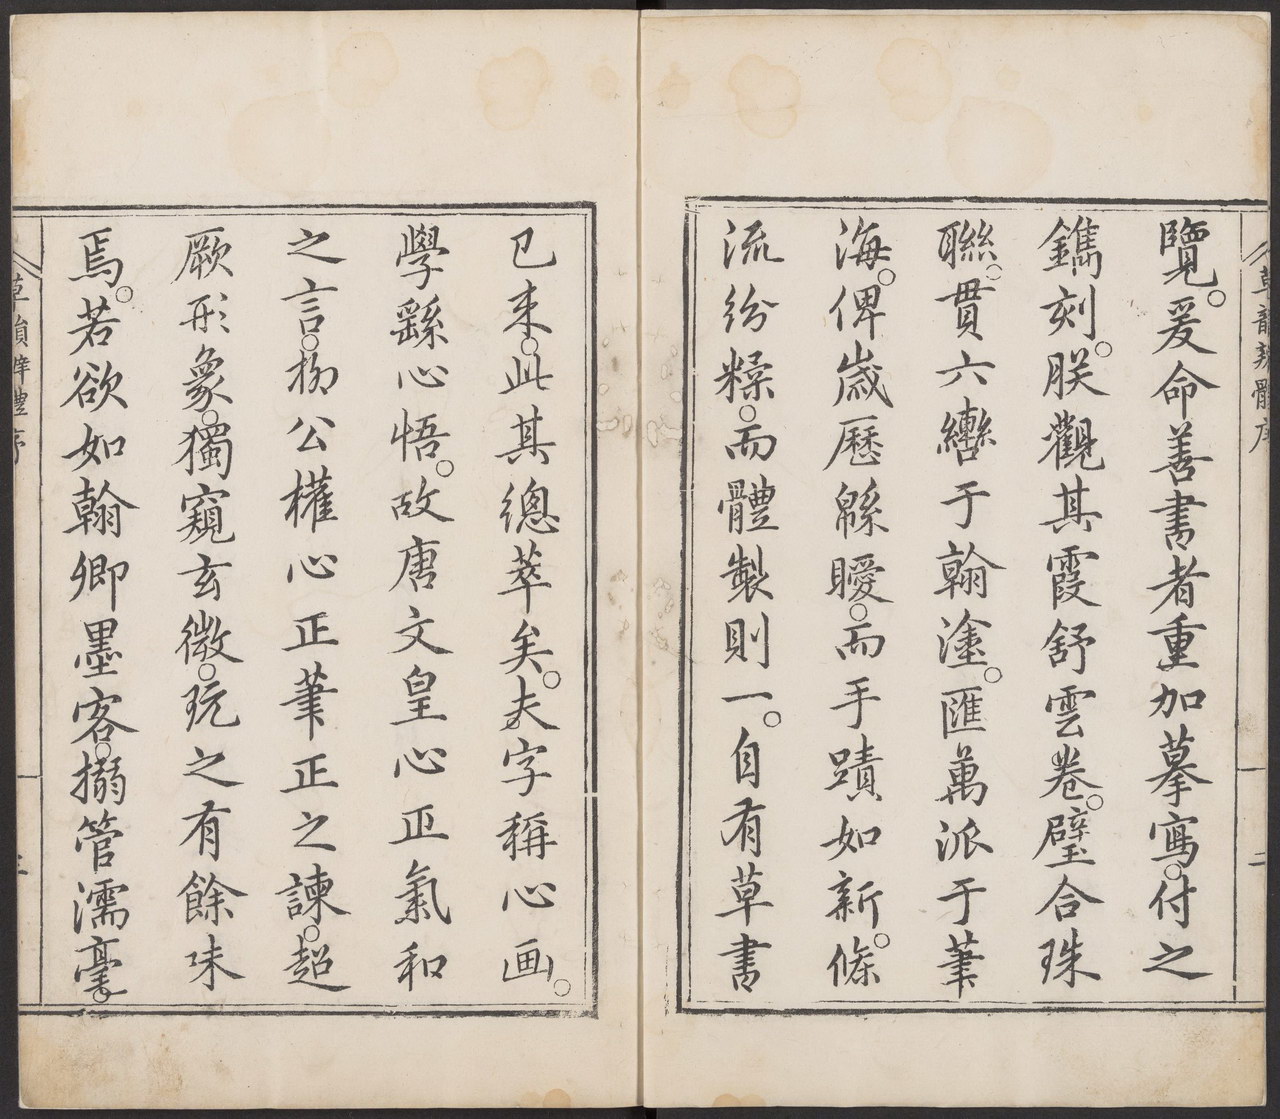 草韻辨體序
二
覽。爰命善書者重加摹寫。付之
鐫刻。朕觀其霞舒雲卷。璧合珠
聯。貫六轡于翰塗。匯萬派于筆
海。俾歲歷緜曖。而手蹟如新。條
流紛糅。而體製則一。自有草書
已来。此其總萃矣。夫字稱心画。
學繇心悟。故唐文皇心正氣和
之言。栁公權心正筆正之諫。超
厥形象。獨窺玄微。玩之有餘味
焉。若欲如翰卿墨客。搦管濡毫。
草韻辨體序